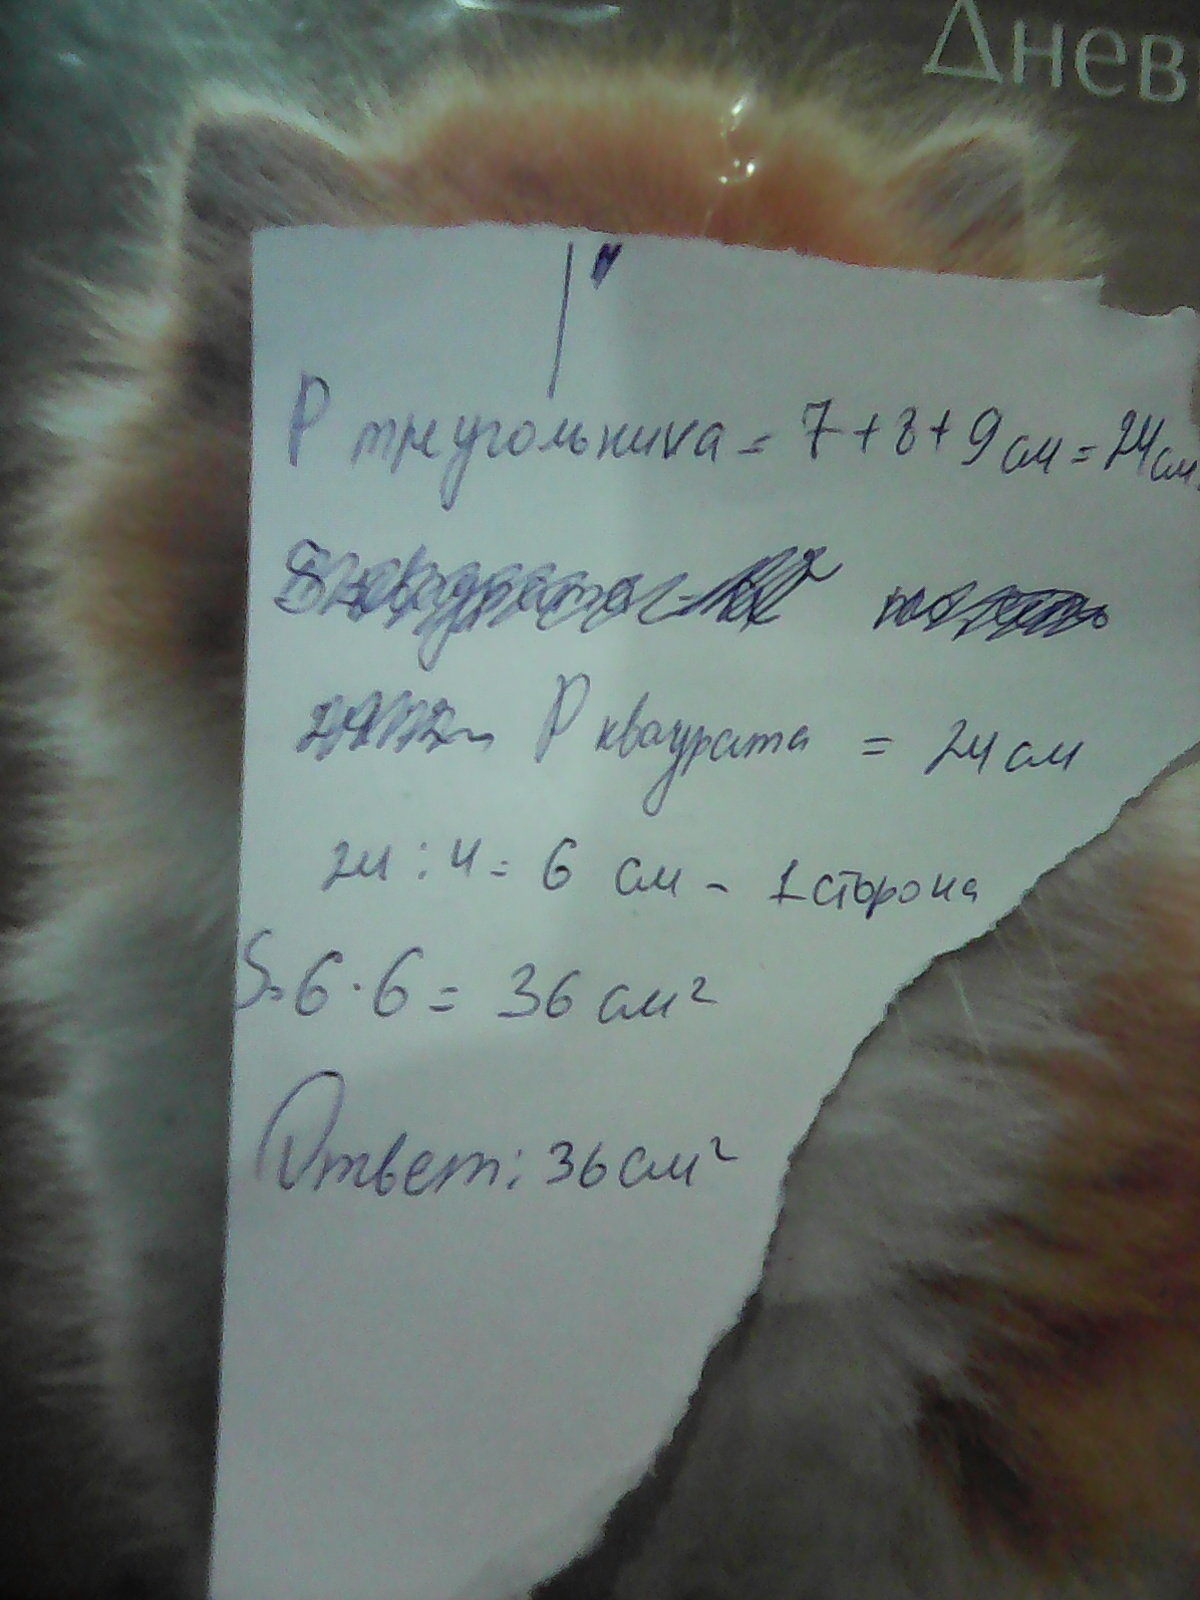 Днев
P треугольника = 7+8+9 см = 24 см.
P квадрата = 24 см
24 : 4 = 6 см - 1 сторона
S = 6 · 6 = 36 см²
Ответ: 36 см²